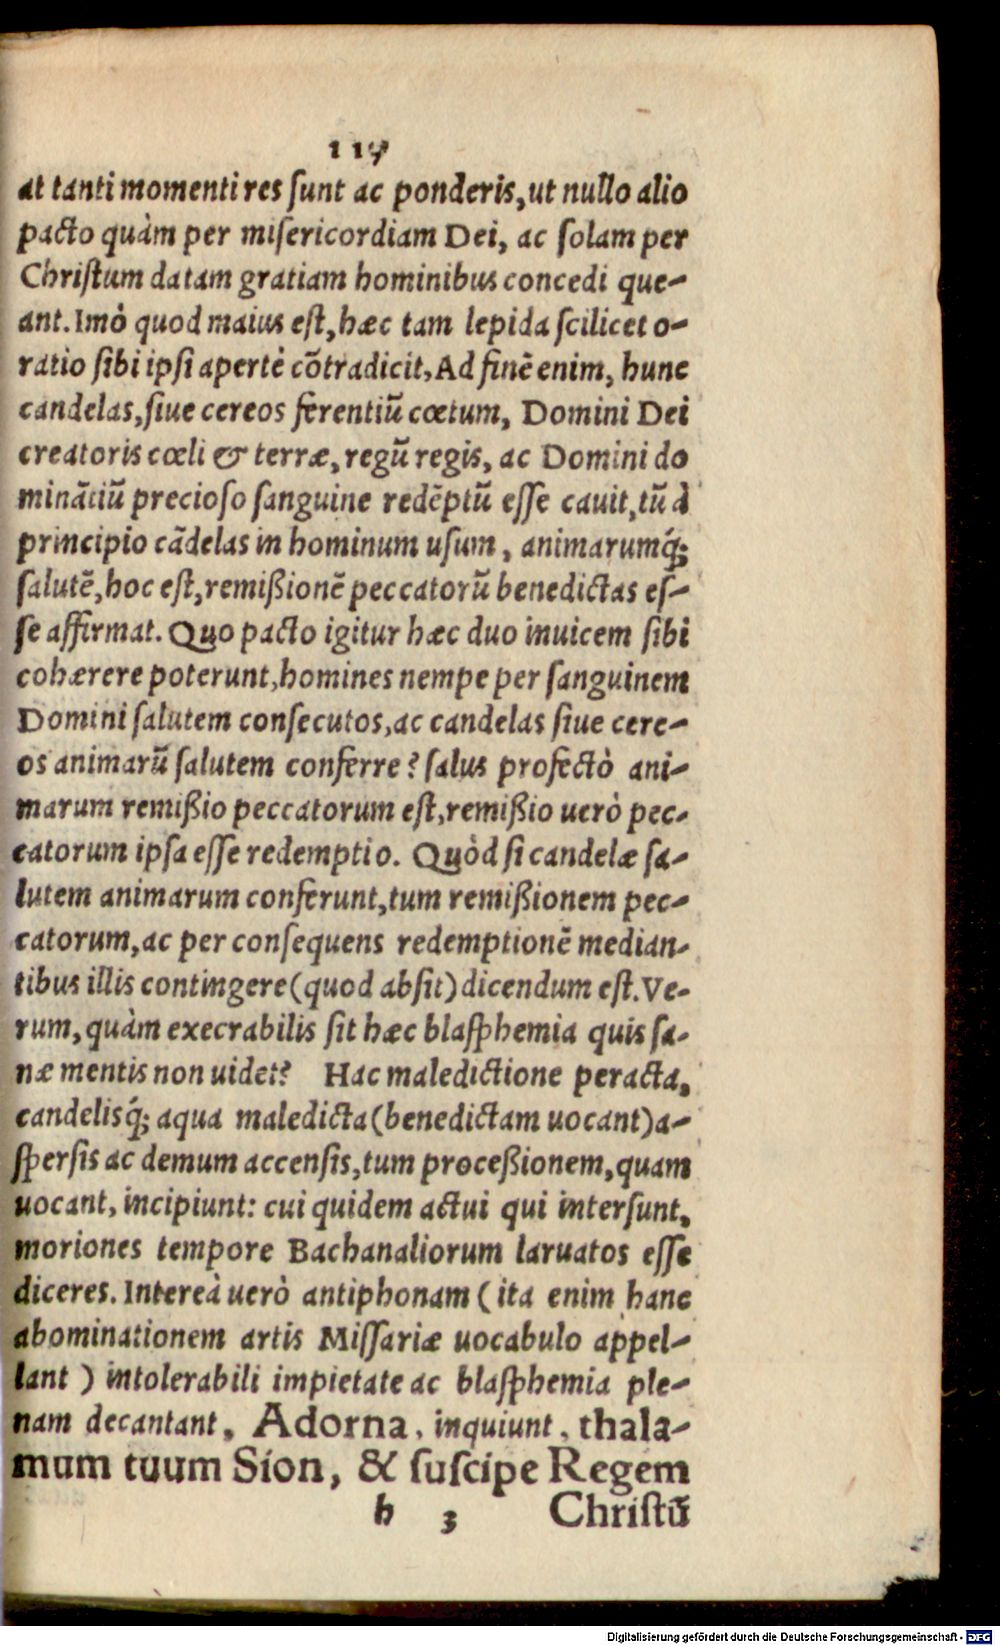 117
at tanti momenti res ſunt ac ponderis, ut nullo alio
pacto quàm per miſericordiam Dei, ac ſolam per
Chriſtum datam gratiam hominibus concedi que-
ant. Imò quod maius eſt, hæc tam lepida ſcilicet o-
ratio ſibi ipſi apertè cõtradicit, Ad finẽ enim, hunc
candelas, ſiue cereos ferentiũ cœtum, Domini Dei
creatoris cœli & terræ, regũ regis, ac Domini do
minãtiũ precioſo ſanguine redẽptũ eſſe cauit, tũ à
principio cãdelas in hominum uſum, animarumq́;
ſalutẽ, hoc eſt, remißionẽ peccatorũ benedictas eſ-
ſe affirmat. Quo pacto igitur hæc duo inuicem ſibi
cohærere poterunt, homines nempe per ſanguinem
Domini ſalutem conſecutos, ac candelas ſiue cere-
os animarũ ſalutem conferre? ſalus profectò ani-
marum remißio peccatorum eſt, remißio uerò pec-
catorum ipſa eſſe redemptio. Quòd ſi candelæ ſa-
lutem animarum conferunt, tum remißionem pec-
catorum, ac per conſequens redemptionẽ median-
tibus illis contingere (quod abſit) dicendum eſt. Ve-
rum, quàm execrabilis ſit hæc blaſphemia quis ſa-
næ mentis non uidet? Hac maledictione peracta,
candelisq́; aqua maledicta (benedictam uocant) a-
ſperſis ac demum accenſis, tum proceßionem, quam
uocant, incipiunt: cui quidem actui qui interſunt,
moriones tempore Bachanaliorum laruatos eſſe
diceres. Intereà uerò antiphonam (ita enim hanc
abominationem artis Miſſariæ uocabulo appel-
lant) intolerabili impietate ac blaſphemia ple-
nam decantant, Adorna, inquiunt, thala-
mum tuum Sion, & ſuſcipe Regem
h 3 Chriſtũ
Digitalisierung gefördert durch die Deutsche Forschungsgemeinschaft - DFG